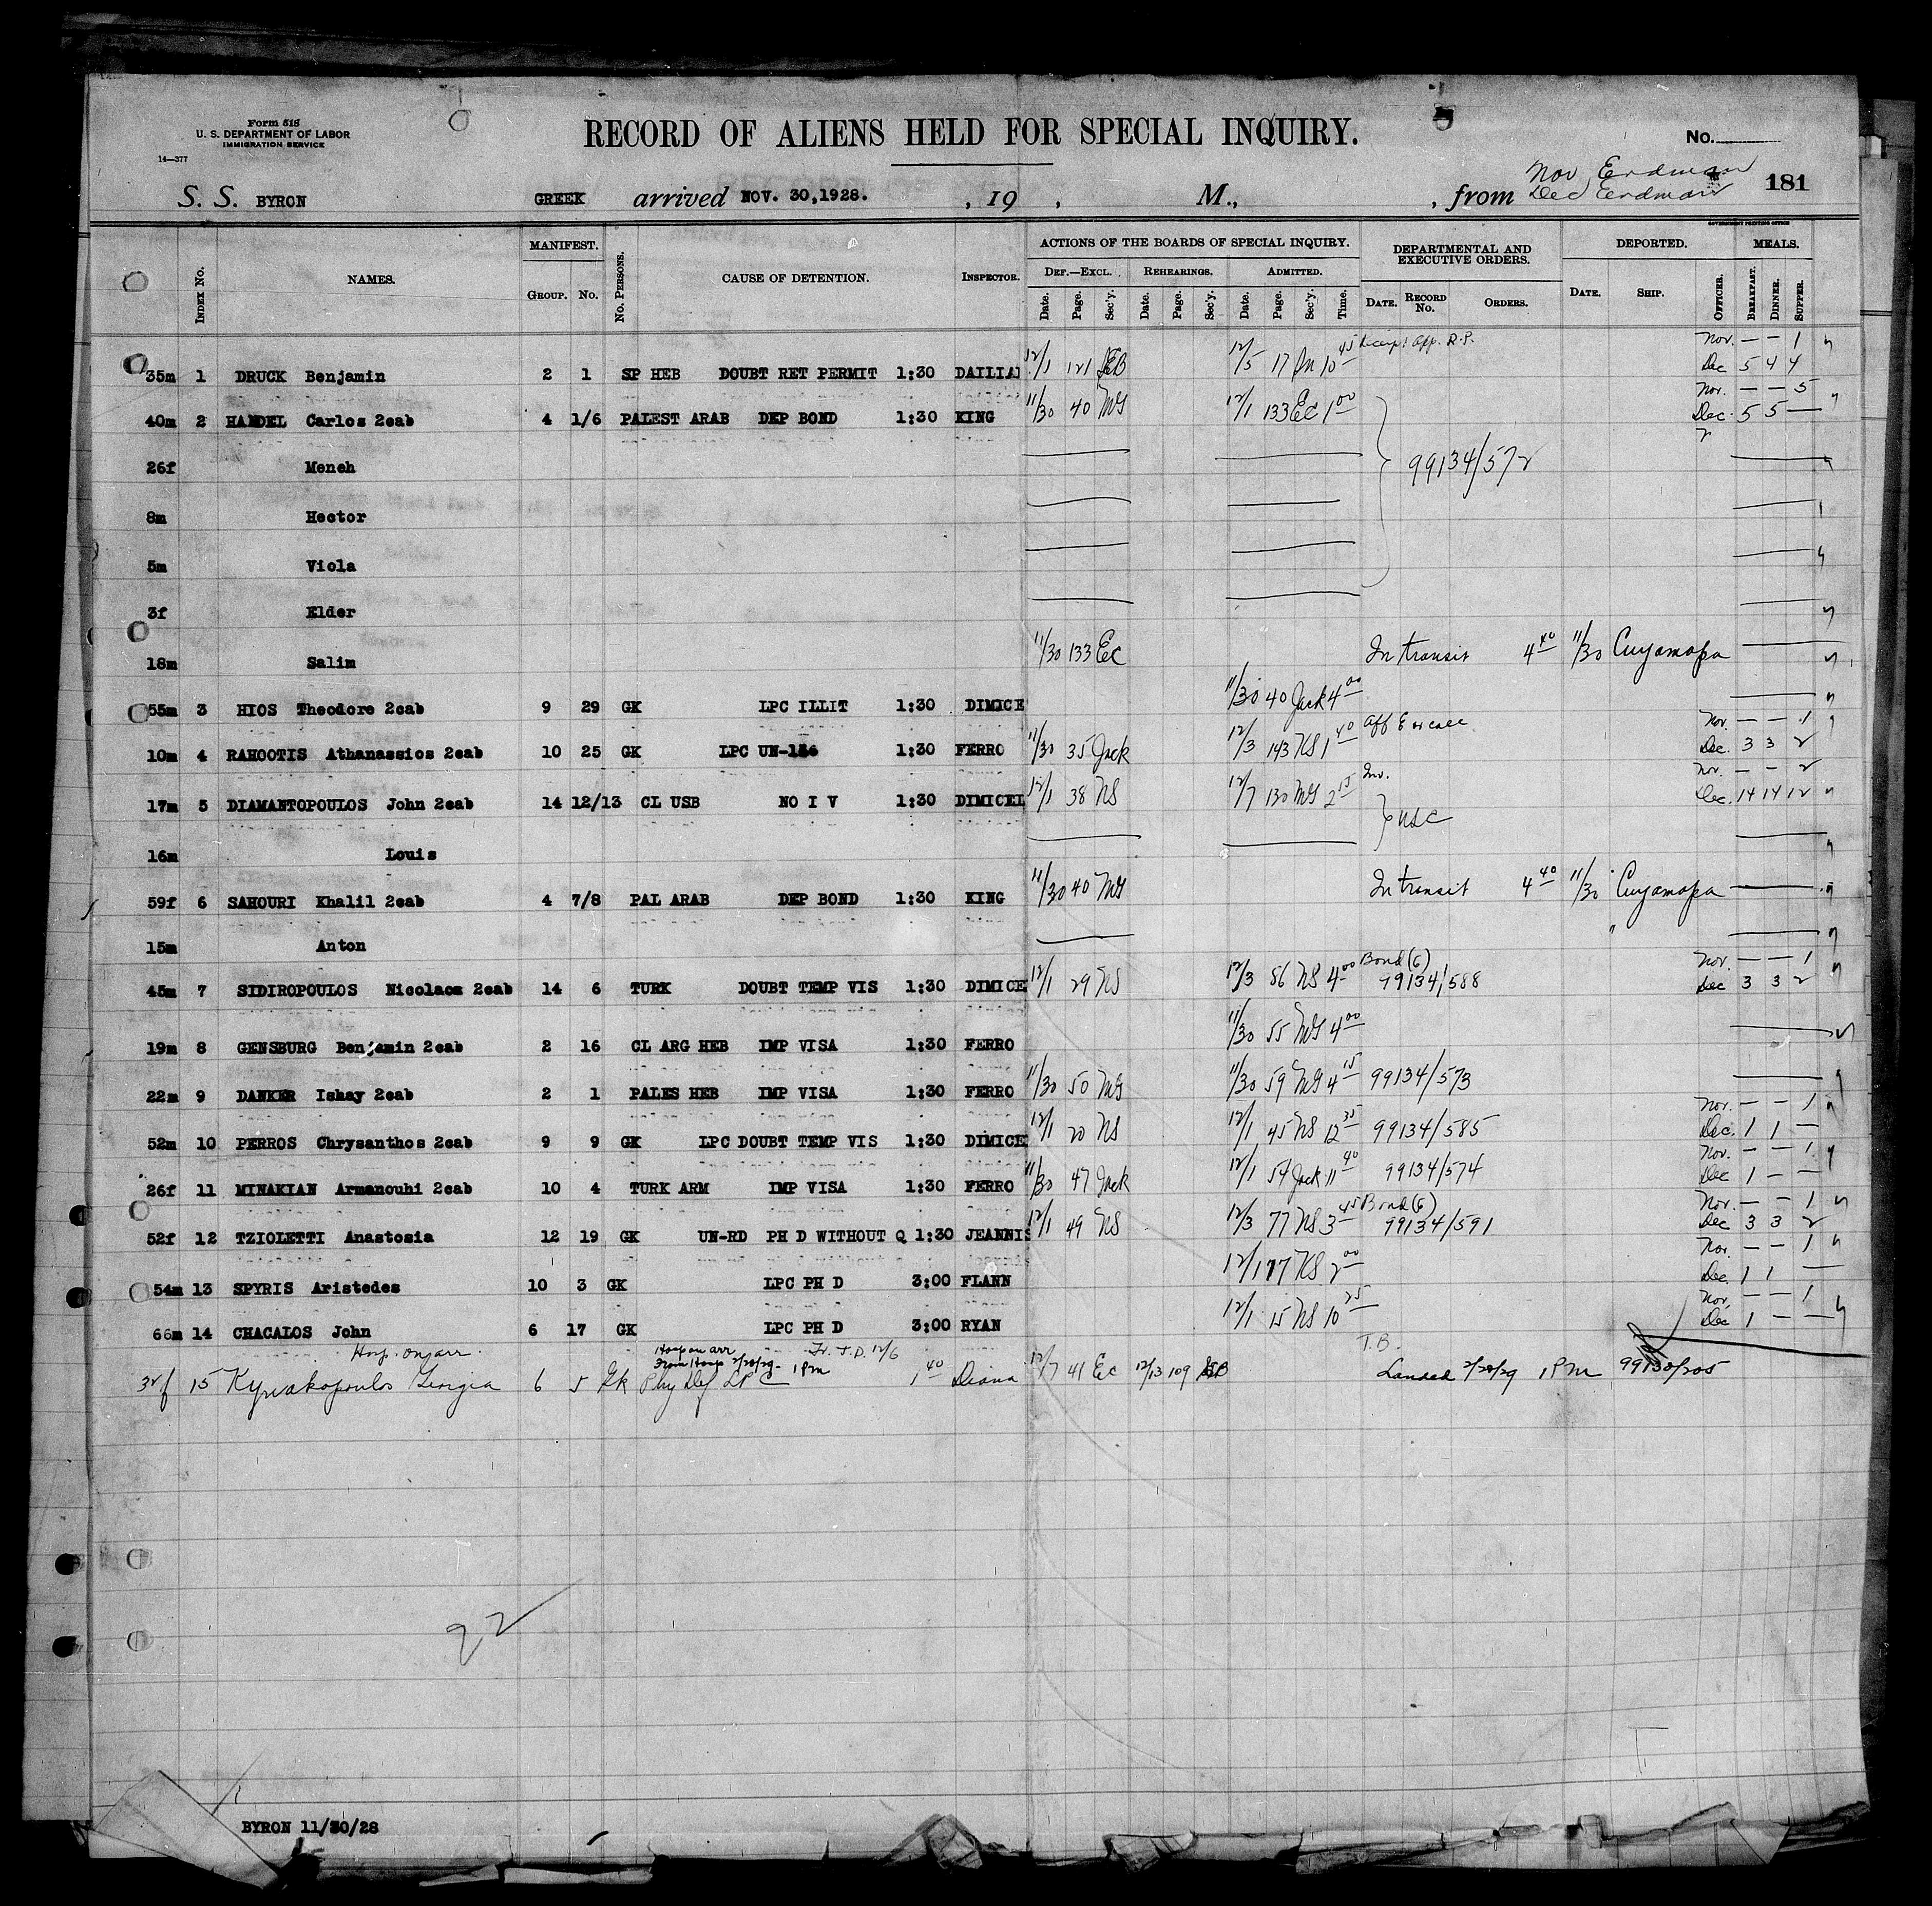 Form 518
U. S. DEPARTMENT OF LABOR
IMMIGRATION SERVICE
14—377
RECORD OF ALIENS HELD FOR SPECIAL INQUIRY.
No.
181
S. S. BYRON GREEK arrived NOV. 30,1928. , 19 , M., , from Nov Erdman
Dec Erdman
GOVERNMENT PRINTING OFFICE
INDEX NO. NAMES. MANIFEST. GROUP. NO. NO. PERSONS. CAUSE OF DETENTION. INSPECTOR. ACTIONS OF THE BOARDS OF SPECIAL INQUIRY. DEF.—EXCL. Date. Page. Sec'y. REHEARINGS. Date. Page. Sec'y. ADMITTED. Date. Page. Sec'y. Time. DEPARTMENTAL AND EXECUTIVE ORDERS. DATE. RECORD NO. ORDERS. DEPORTED. DATE. SHIP. OFFICER. MEALS. BREAKFAST. DINNER. SUPPER.
Nov. — — 1
35m 1 DRUCK Benjamin 2 1 SP HEB DOUBT RET PERMIT 1:30 DAILIA 12/1 121 12/5 17 10 45 App. R.P. Dec 5 4 4
Nov. — — 5
40m 2 HANDEL Carlos 2cab 4 1/6 PALEST ARAB DEP BOND 1:30 KING 11/30 40 MG 12/1 133 EC 1 00 Dec. 5 5 —
26f Meneh 99134/572
8m Hector
5m Viola
3f Elder
18m Salim 11/30 133 EC In transit 4 40 11/30 Cuyamapa
55m 3 HIOS Theodore 2cab 9 29 GK LPC ILLIT 1:30 DIMICE 11/30 40 Jack 4 00
Nov. — — 1
10m 4 RAHOOTIS Athanassios 2cab 10 25 GK LPC UN-16 1:30 FERRO 11/30 35 Jack 12/3 143 NS 1 40 Dec. 3 3 2
Nov. — — 2
17m 5 DIAMANTOPOULOS John 2cab 14 12/13 CL USB NO I V 1:30 DIMICEL 12/1 38 NS 12/7 130 MG 2 15 Inv. Dec. 14 14 12
USC
16m Louis
59f 6 SAHOURI Khalil 2cab 4 7/8 PAL ARAB DEP BOND 1:30 KING 11/30 40 MG In transit 4 40 11/30 Cuyamapa
15m Anton "
Bond (G) Nov. — — 1
45m 7 SIDIROPOULOS Nicolaos 2cab 14 6 TURK DOUBT TEMP VIS 1:30 DIMICE 12/1 29 NS 12/3 86 NS 4 00 99134/588 Dec 3 3 2
19m 8 GENSBURG Benjamin 2cab 2 16 CL ARG HEB IMP VISA 1:30 FERRO 11/30 55 MG 4 00
22m 9 DANKER Ishay 2cab 2 1 PALES HEB IMP VISA 1:30 FERRO 11/30 50 MG 11/30 59 MG 4 15 99134/573
Nov. — — 1
52m 10 PERROS Chrysanthos 2cab 9 9 GK LPC DOUBT TEMP VIS 1:30 DIMICE 12/1 20 NS 12/1 45 NS 12 35 99134/585 Dec. 1 1 —
Nov. — — 1
26f 11 MINAKIAN Armanouhi 2cab 10 4 TURK ARM IMP VISA 1:30 FERRO 11/30 47 Jack 12/1 54 Jack 11 40 99134/574 Dec 1 — —
Bond (G) Nov. — — 1
52f 12 TZIOLETTI Anastosia 12 19 GK UN-RD PH D WITHOUT Q 1:30 JEANNIS 12/1 49 NS 12/3 77 NS 3 45 99134/591 Dec 3 3 2
Nov. — — 1
54m 13 SPYRIS Aristedes 10 3 GK LPC PH D 3:00 FLANN 12/1 17 NS 2 00 Dec. 1 1 —
Nov. — — 1
66m 14 CHACALOS John 6 17 GK LPC PH D 3:00 RYAN 12/1 15 NS 10 25 Dec 1 — —
Hosp. on arr. Hosp on arr T.D. 12/6 T.B.
From Hosp 2/20/29 1 Pm
32f 15 Kyriakopoulos Georgia 6 5 Gk Phy Def LPC 1 40 Diana 12/7 41 EC 12/13 109 Landed 2/20/29 1 Pm 99130/205
22
BYRON 11/30/28